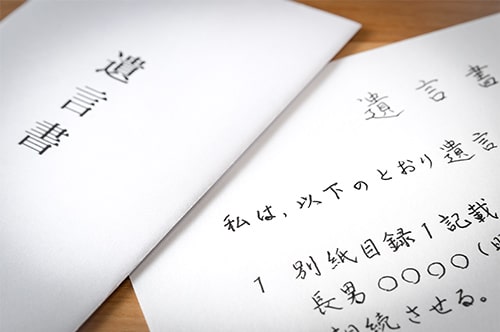 遺言書
遺言書
私は、以下のとおり遺言
1 別紙目録1記載
長男 〇〇〇〇(
相続させる。